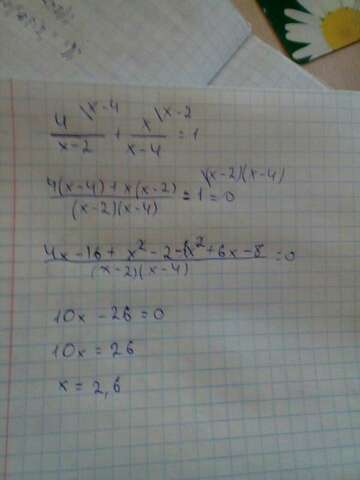 4\x-4 / x-2 + x\x-2 / x-4 = 1
4(x-4)+x(x-2) / (x-2)(x-4) = 1\(x-2)(x-4) = 0
4x-16+x²-2-x²+6x-8 / (x-2)(x-4) = 0
10x - 26 = 0
10x = 26
x = 2,6